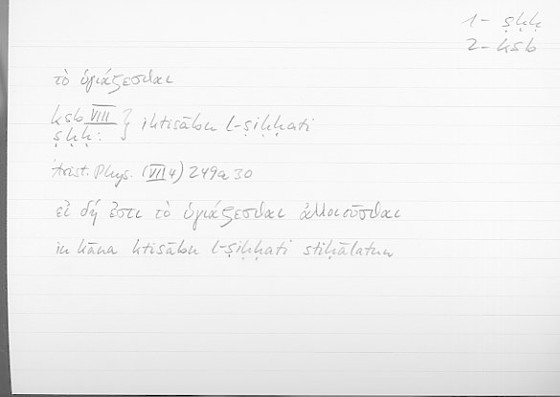 1- ṣḥḥ
2- ksb
τὸ ὑγιάζεσθαι
ksb VIII } iktisābu l-ṣiḥḥati
ṣḥḥ:
Arist. Phys. (VII 4) 249a 30
εἰ δή ἐστι τὸ ὑγιάζεσθαι ἀλλοιοῦσθαι
in kāna ktisābu l-ṣiḥḥati stiḥālatun